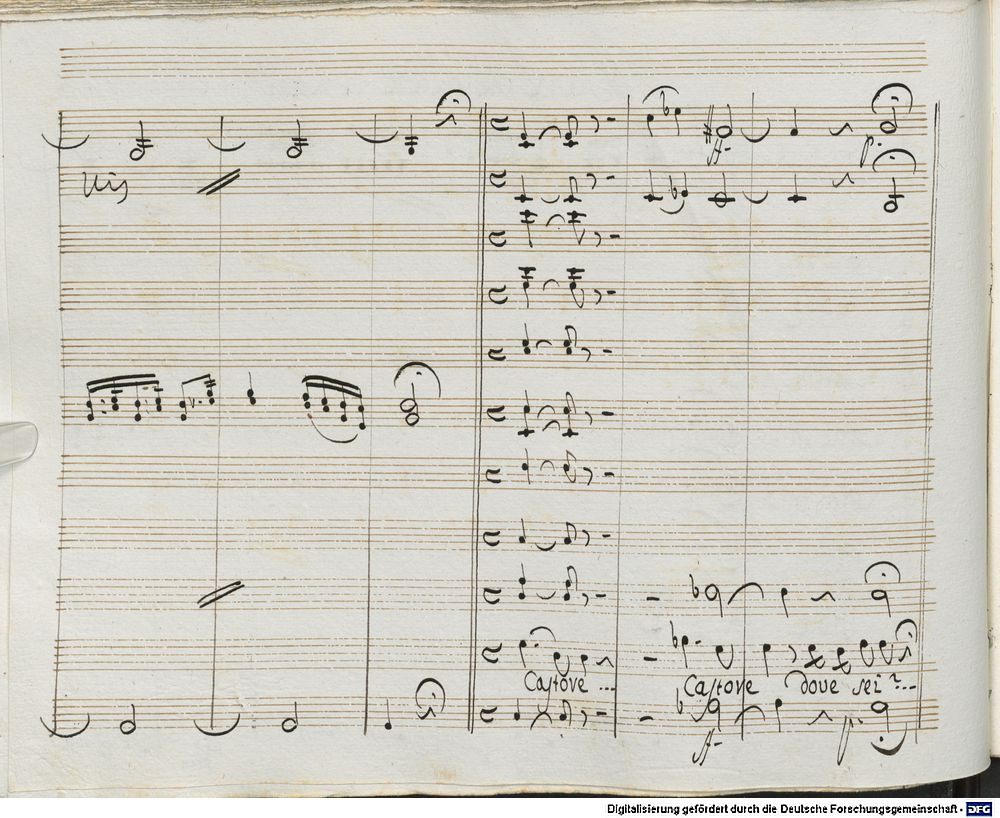 Unis
f.
p.
Castore ... Castore dove sei?...
f. p.
Digitalisierung gefördert durch die Deutsche Forschungsgemeinschaft - DFG